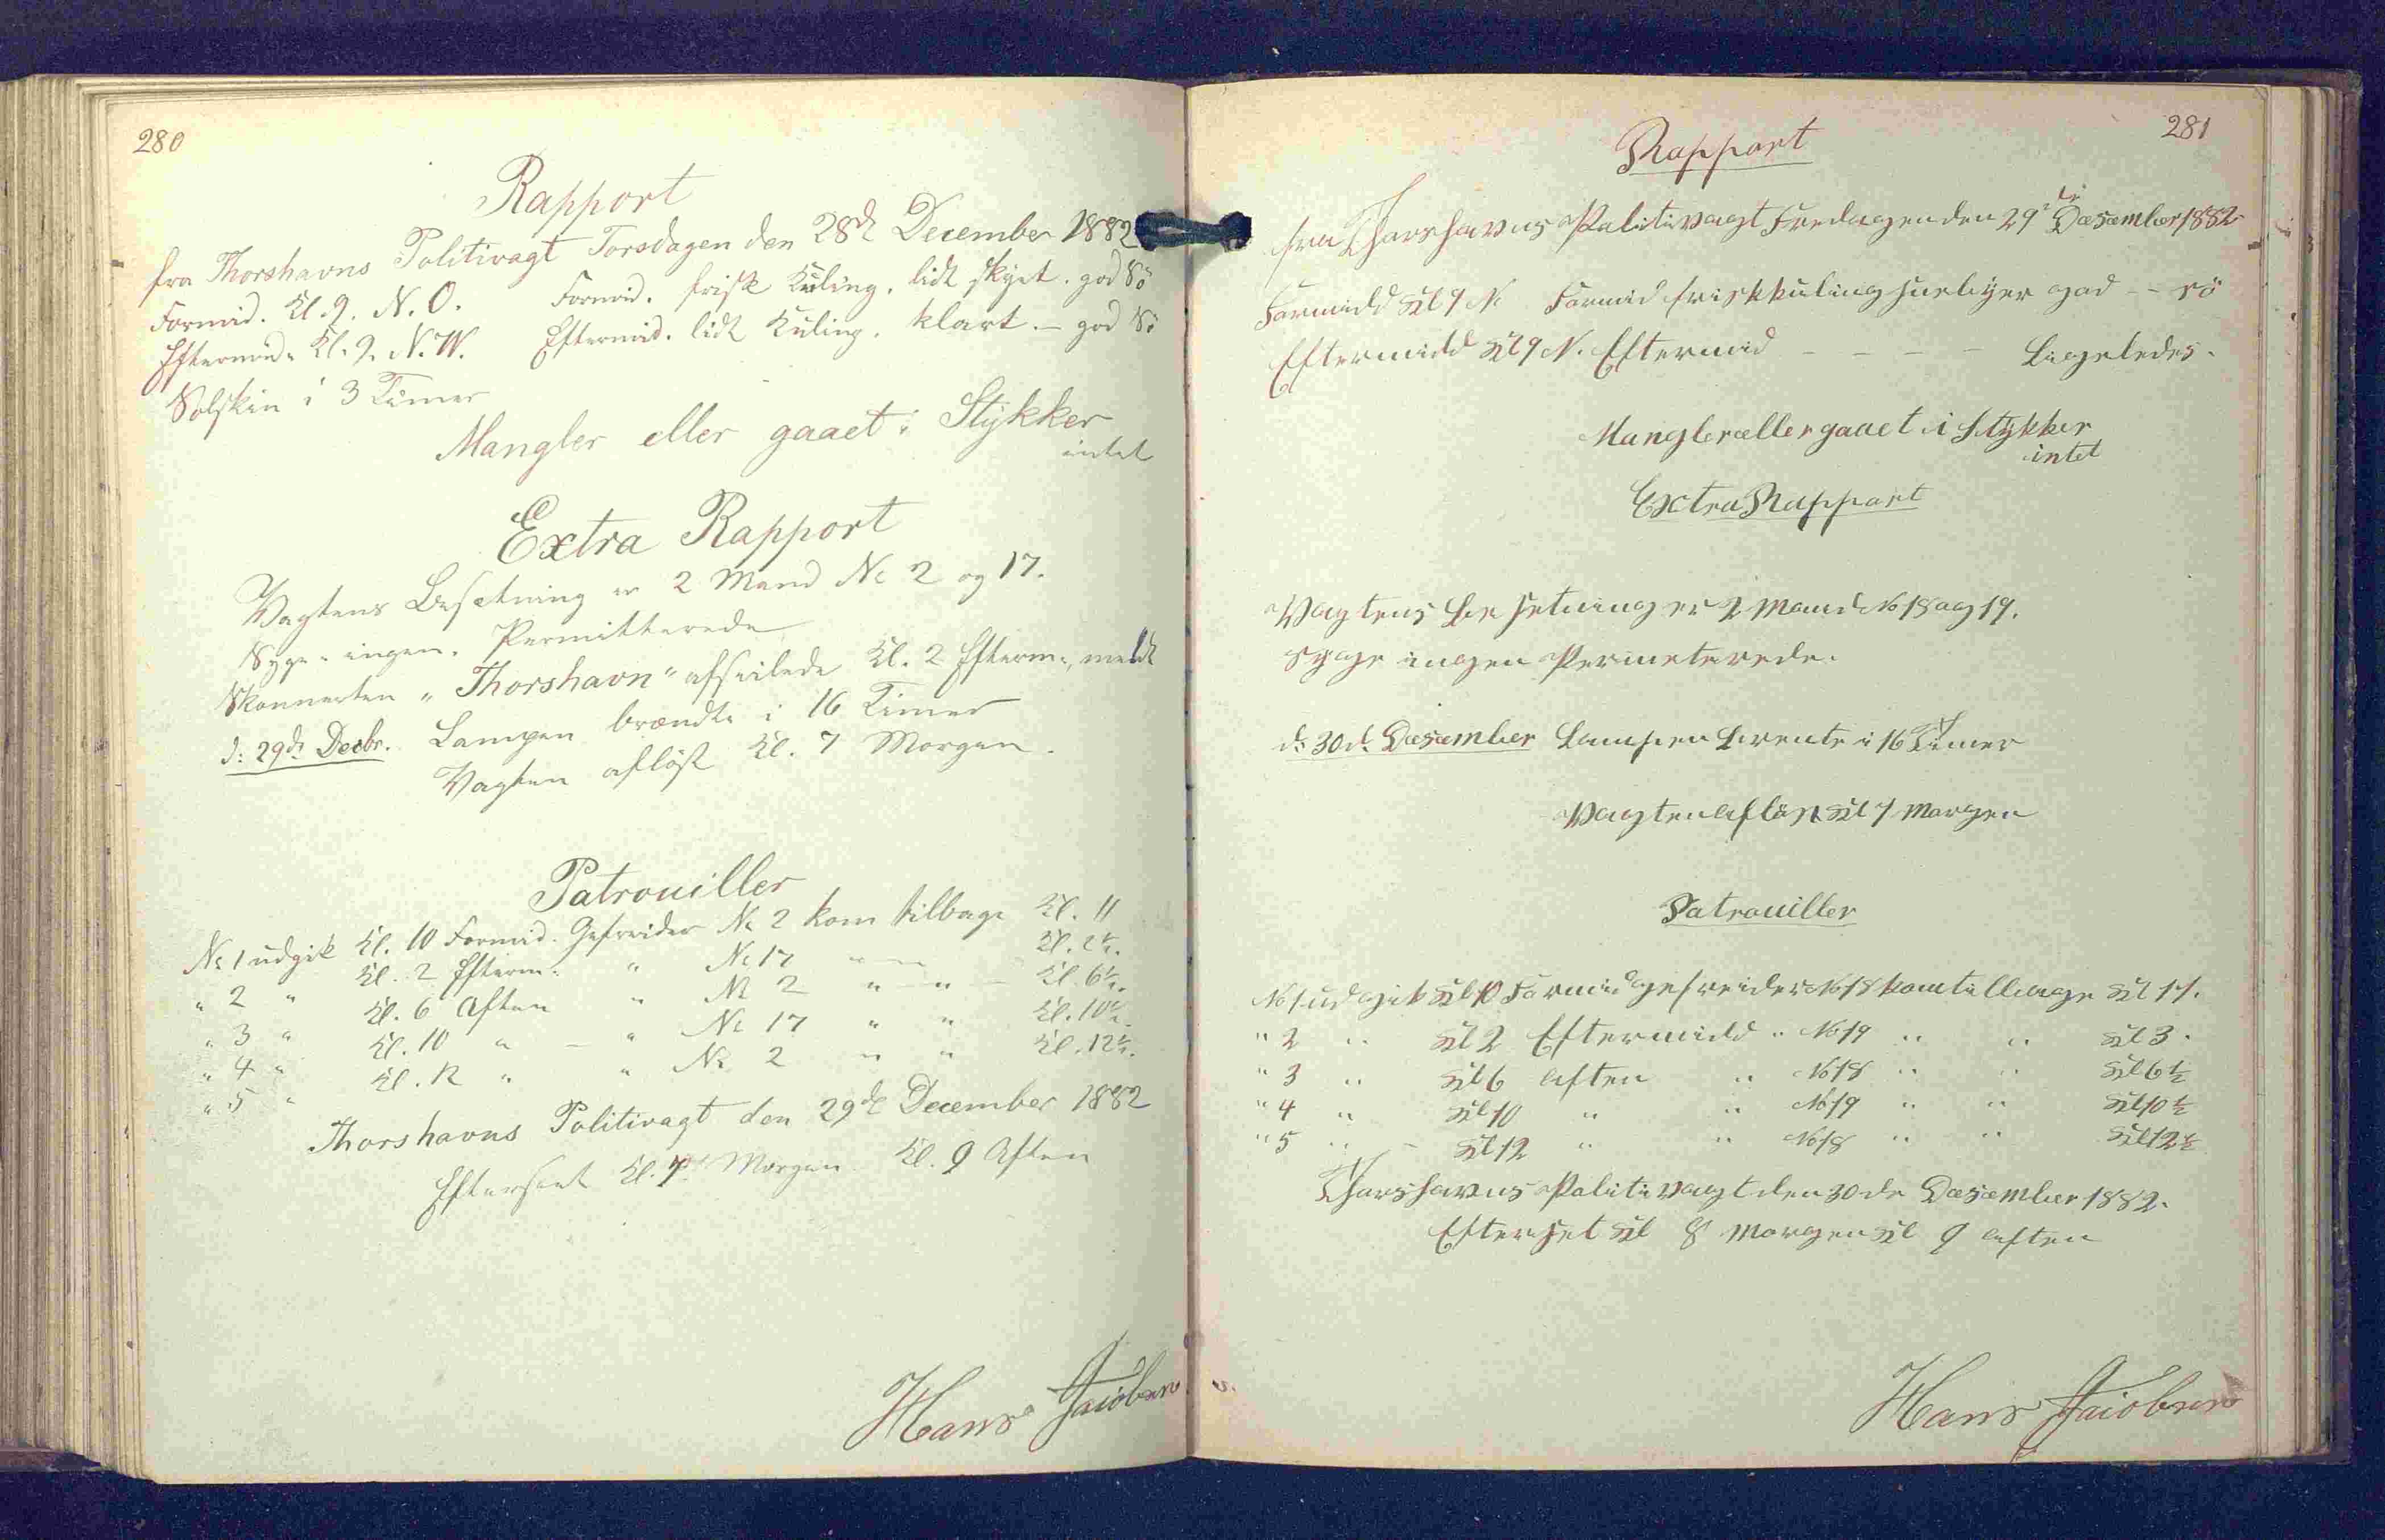 280
Rapport
fra Thorshavns Politivagt Torsdagen den 28de December 1882
Formid. Kl. 9. N.O. Formid. frisk Kuling, lidt skyet. god Sö
Eftermid. Kl. 9. N.W. Eftermid. lidt Kuling. klart. — god Sö
Solskin i 3 Timer
Mangler eller gaaet i Stykker
intet
Extra Rapport
Vagtens Besetning er 2 Mand No 2 og 17.
Syge. ingen. Permitterede
Skonnerten "Thorshavn" afseilede Kl. 2 Efterm.,
d: 29de Decbr. Lampen brændte i 16 Timer
Vagten aflöst Kl. 7 Morgen.
Patrouiller
No 1 udgik Kl. 10 Formid. Gefreider No 2 kom tilbage Kl. 11
" 2 " Kl. 2 Efterm. " No 17 " — Kl. 2½.
" 3 " Kl. 6 Aften " No 2 " " — Kl. 6½.
" 4 " Kl. 10 " — " No 17 " " Kl. 10½.
" 5 " Kl. 12 " " No 2 " " Kl. 12½.
Thorshavns Politivagt den 29de December 1882
Efterseet Kl. 7 Morgen Kl. 9 Aften
Hans Jacobsen
281
Rapport
fra Thorshavns Politivagt Fredagen den 29de Desember 1882
Formidd Kl 9 N. Formid frisk kuling god — sö
Eftermidd Kl 9 N. Eftermid — — — — Ligeledes.
Mangler eller gaaet i stykker
intet
Extra Rapport
Vagtens besetning er 2 Mand No 18 og 19.
syge ingen Permeterede.
d: 30d. Desember Lampen brente i 16 Timer
Vagten aflöst Kl 7 Morgen
Patrouiller
No 1 udgik Kl 10 Formid gefreider No 18 kom tilbage Kl 11.
" 2 " Kl 2 Eftermidd " No 19 " " Kl 3.
" 3 " Kl 6 aften " No 18 " " Kl 6½
" 4 " Kl 10 " " No 19 " " Kl 10½
" 5 " — Kl 12 " " No 18 " " Kl 12½
Thorshavns Politivagt den 30de Desember 1882.
Efterset Kl 8 Morgen Kl 9 aften
Hans Jacobsen